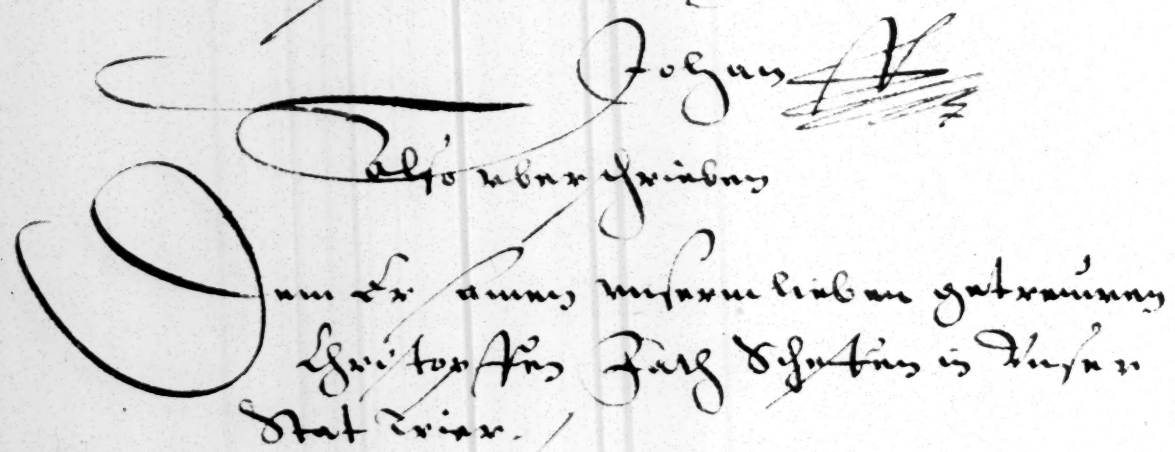 Johan
Also vberschrieben
Dem Ersamen vnserm lieben getrewen
Christoffen Fath Scheffen in Vnser
Stat Trier.